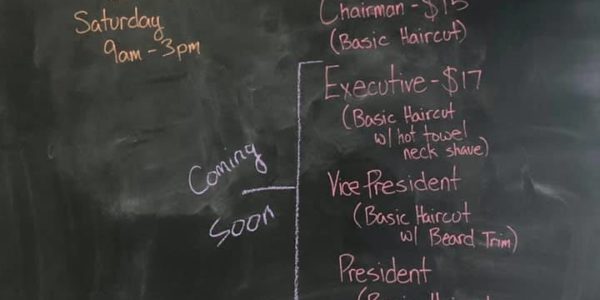 Saturday
9am - 3pm
Chairman - $15
(Basic Haircut)
Executive - $17
(Basic Haircut
w/ hot towel
neck shave)
Coming
Soon
Vice President
(Basic Haircut
w/ Beard Trim)
President
(Basic Haircut